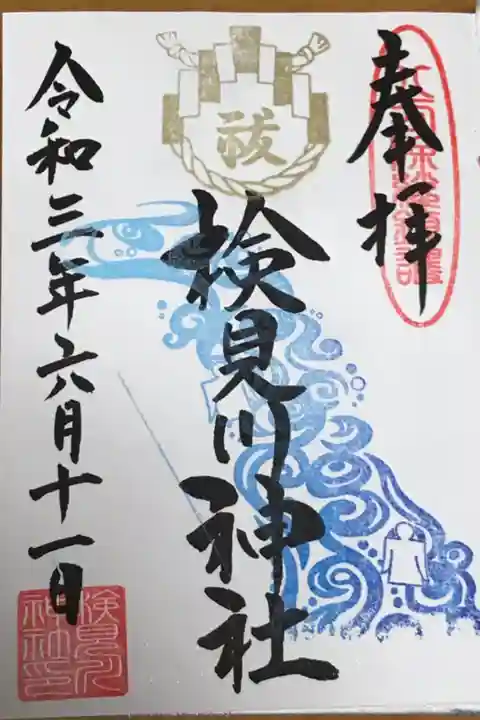 奉拝
祓
検見川神社
令和三年六月十一日
検見川
神社印